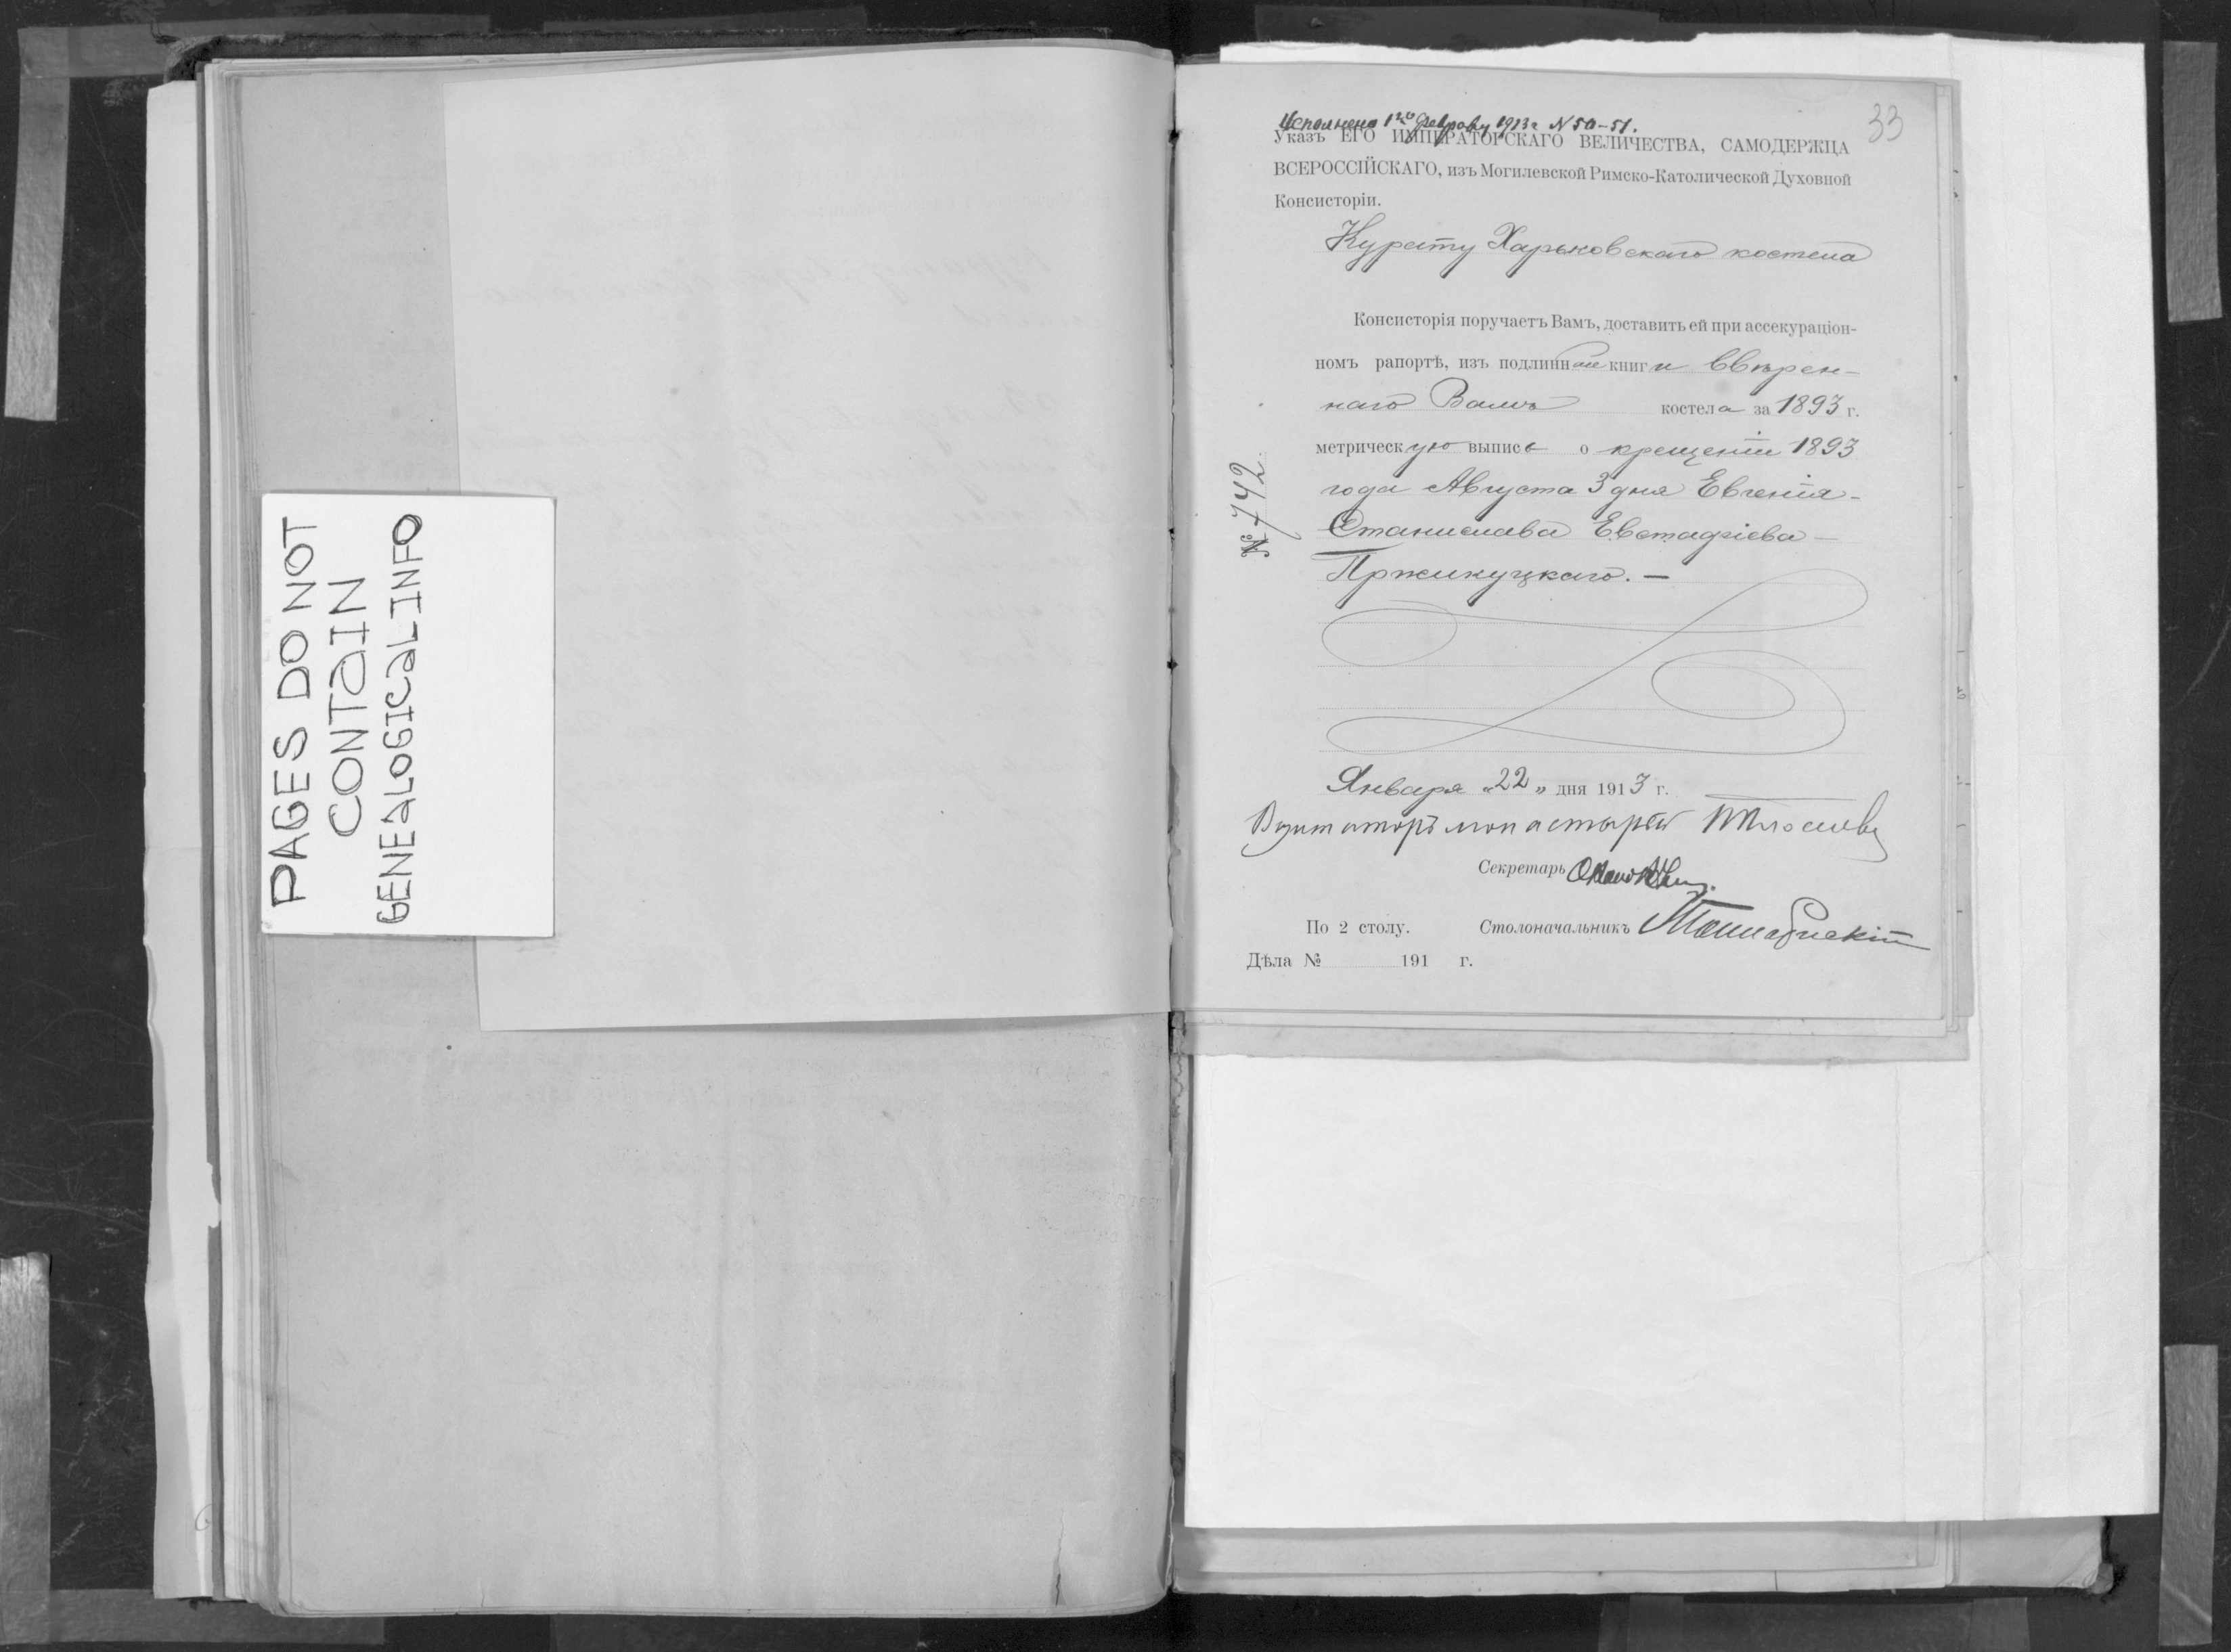 PAGES DO NOT
CONTAIN
GENEALOGICAL INFO
33
Исполнено 1го Февраля 1913 г N 50-51.
Указъ ЕГО ИМПЕРАТОРСКАГО ВЕЛИЧЕСТВА, САМОДЕРЖЦА
ВСЕРОССІЙСКАГО, изъ Могилевской Римско-Католической Духовной
Консисторіи.
Курату Харьковскаго костела
Консисторія поручаетъ Вамъ, доставить ей при ассекураціон-
номъ рапортѣ, изъ подлинной книги ввѣрен-
наго Вамъ костела за 1893 г.
метрическую выпись о крещеніи 1893
года Августа 3 дня Евгенія-
Станислава Евстафіева -
Пржилуцкаго. -
№ 742
Января "22" дня 1913 г.
Визитаторъ монастырей
Секретарь
По 2 столу. Столоначальникъ
Дѣла № 191 г.